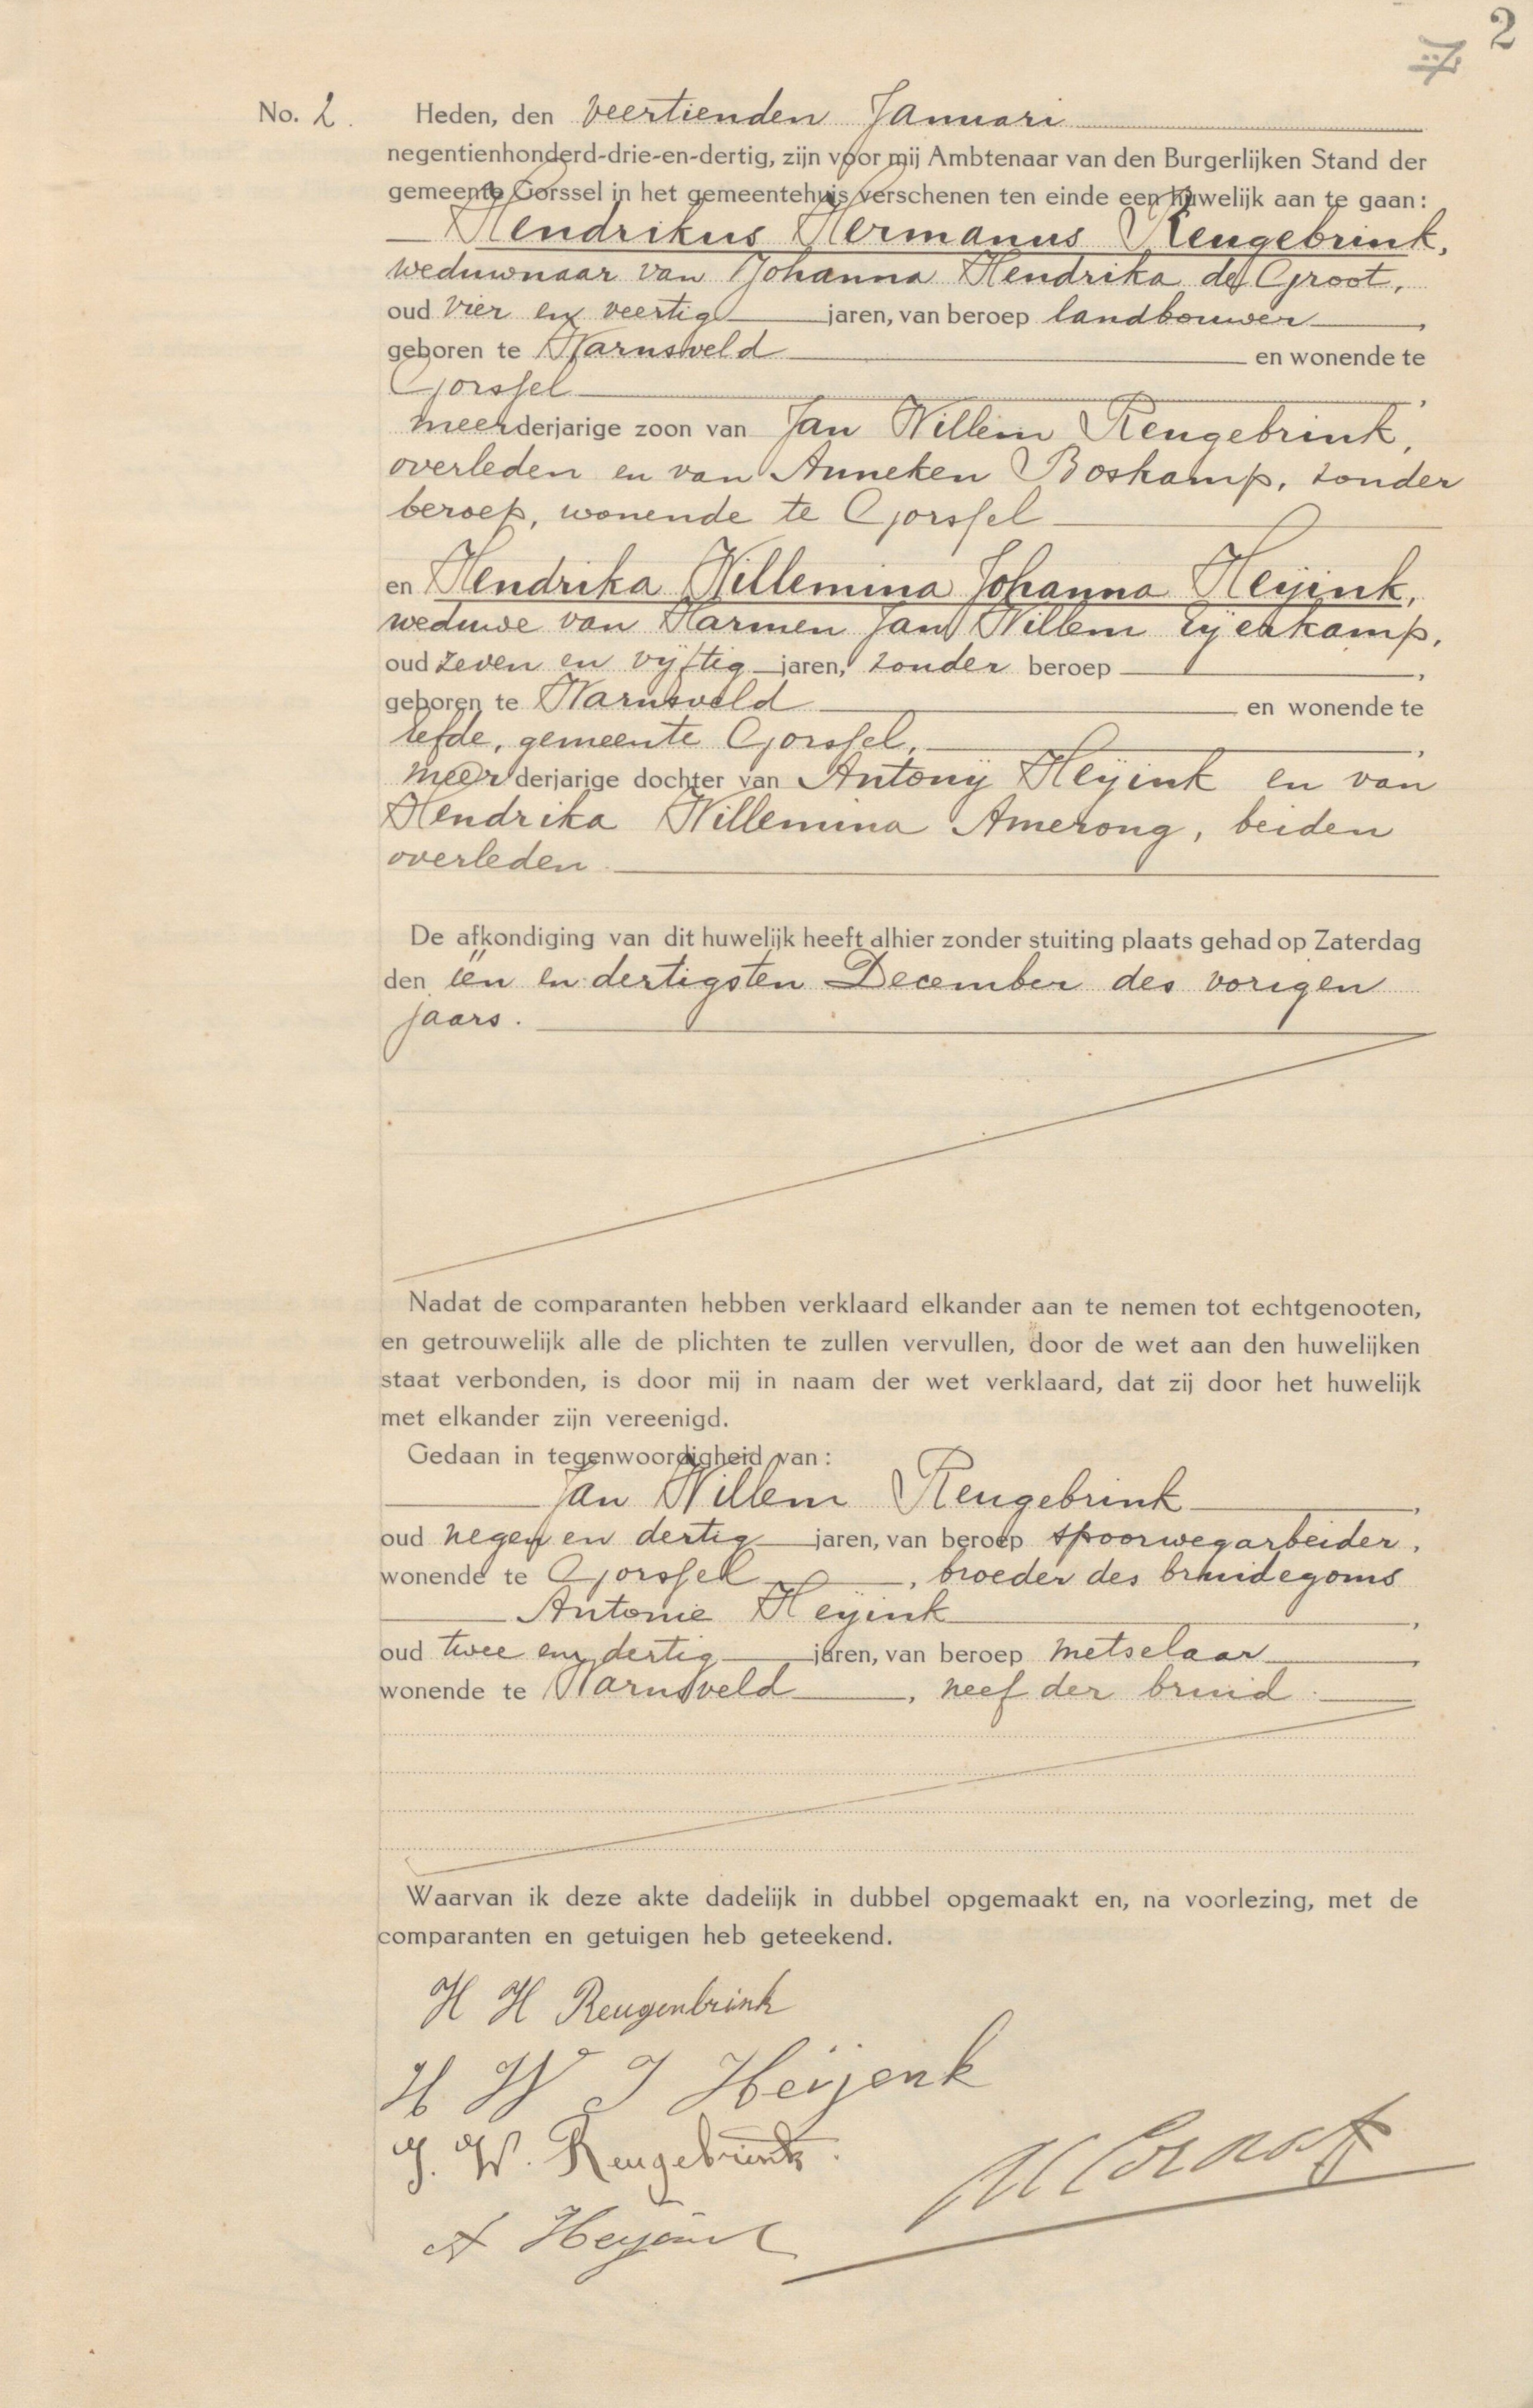 2
No. 2. Heden, den veertienden Januari
negentienhonderd-drie-en-dertig, zijn voor mij Ambtenaar van den Burgerlijken Stand der
gemeente Gorssel in het gemeentehuis verschenen ten einde een huwelijk aan te gaan:
Hendrikus Hermanus Reugebrink,
weduwnaar van Johanna Hendrika de Groot,
oud vier en veertig jaren, van beroep landbouwer,
geboren te Warnsveld en wonende te
Gorssel,
meerderjarige zoon van Jan Willem Reugebrink,
overleden en van Anneken Boskamp, zonder
beroep, wonende te Gorssel
en Hendrika Willemina Johanna Heijink,
weduwe van Harmen Jan Willem Eijerkamp,
oud zeven en vijftig jaren, zonder beroep,
geboren te Warnsveld en wonende te
Eefde, gemeente Gorssel,
meerderjarige dochter van Antonij Heijink en van
Hendrika Willemina Amerong, beiden
overleden
De afkondiging van dit huwelijk heeft alhier zonder stuiting plaats gehad op Zaterdag
den één en dertigsten December des vorigen
jaars.
Nadat de comparanten hebben verklaard elkander aan te nemen tot echtgenooten,
en getrouwelijk alle de plichten te zullen vervullen, door de wet aan den huwelijken
staat verbonden, is door mij in naam der wet verklaard, dat zij door het huwelijk
met elkander zijn vereenigd.
Gedaan in tegenwoordigheid van:
Jan Willem Reugebrink,
oud negen en dertig jaren, van beroep spoorwegarbeider,
wonende te Gorssel, broeder des bruidegoms
Antonie Heijink,
oud twee en dertig jaren, van beroep metselaar,
wonende te Warnsveld, neef der bruid.
Waarvan ik deze akte dadelijk in dubbel opgemaakt en, na voorlezing, met de
comparanten en getuigen heb geteekend.
H H Reugenbrink
H W J Heijenk
J. W. Reugebrink.
A Heijink